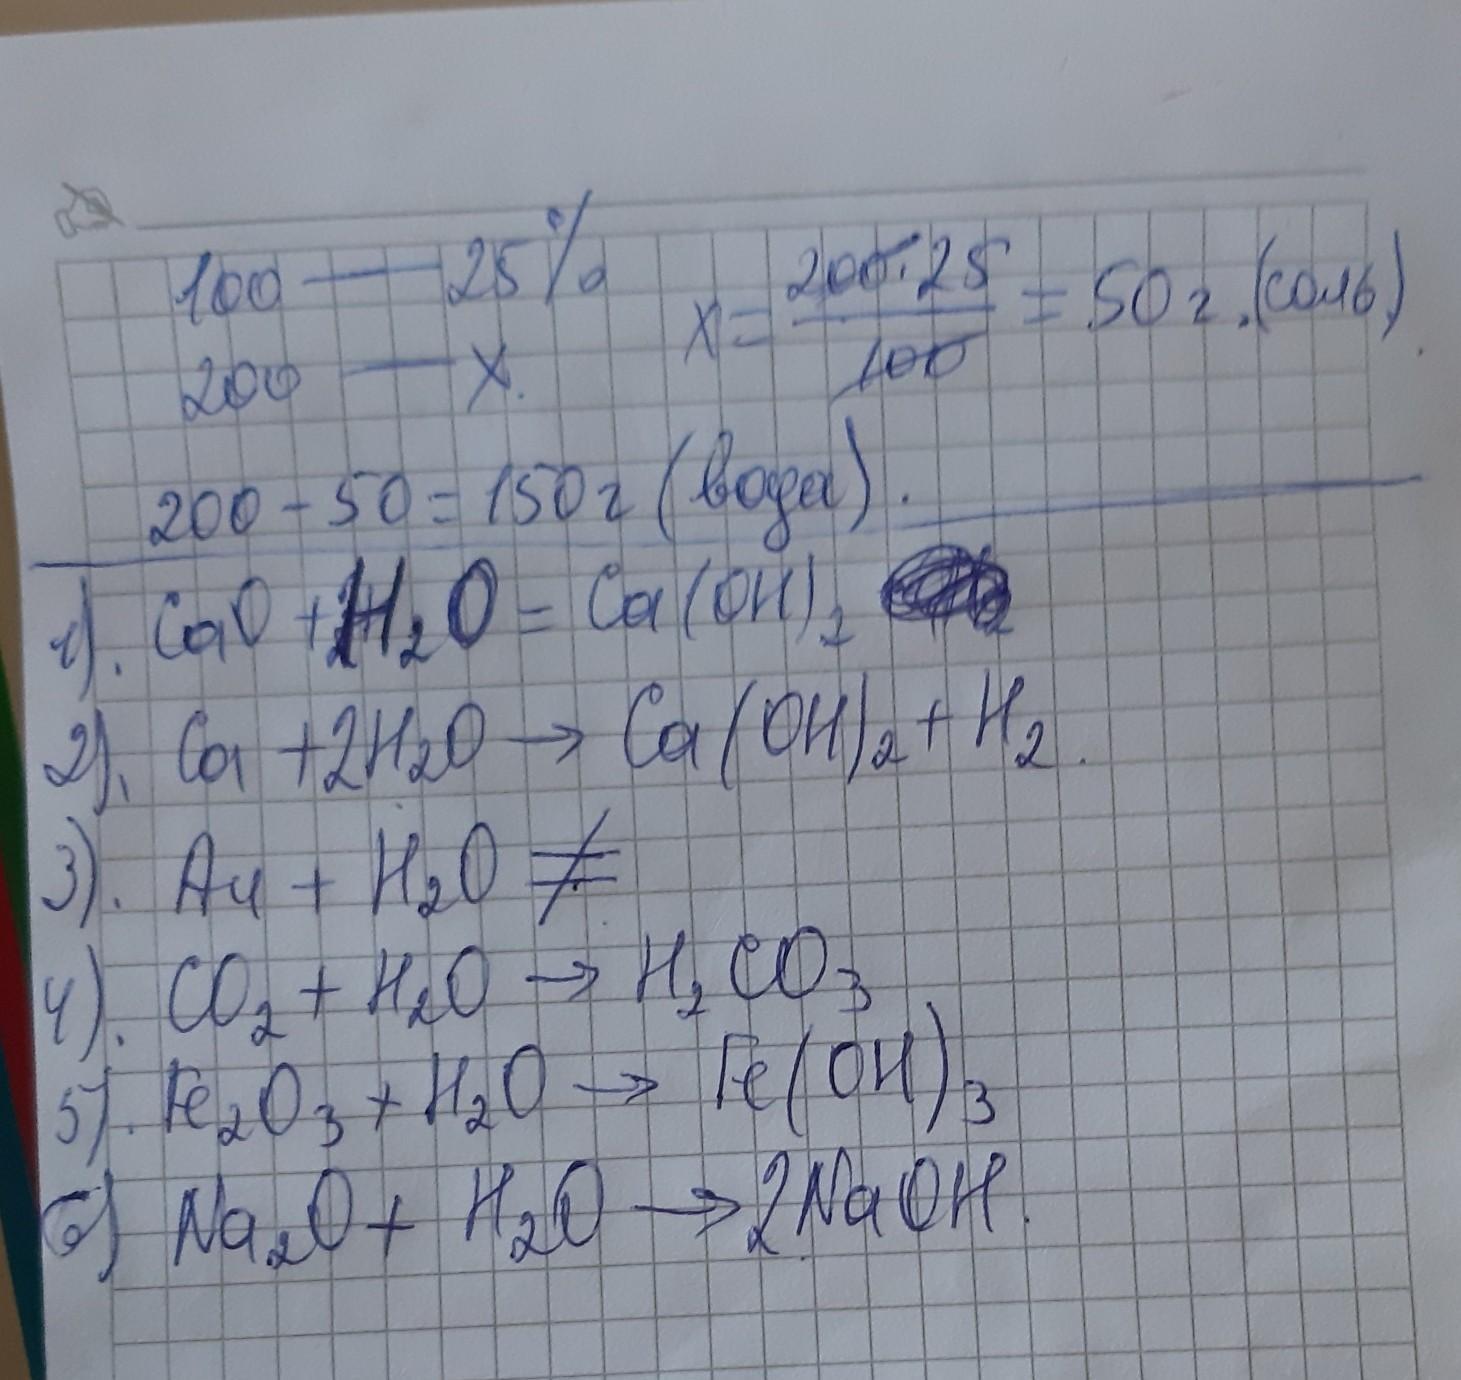 100 — 25%
x = 200·25 / 100 = 50 г. (соль)
200 — x.
200 - 50 = 150 г (вода).
1). CaO + H₂O = Ca(OH)₂
2). Ca + 2H₂O → Ca(OH)₂ + H₂.
3). Au + H₂O ≠
4). CO₂ + H₂O → H₂CO₃
5). Fe₂O₃ + H₂O → Fe(OH)₃
6) Na₂O + H₂O → 2NaOH.